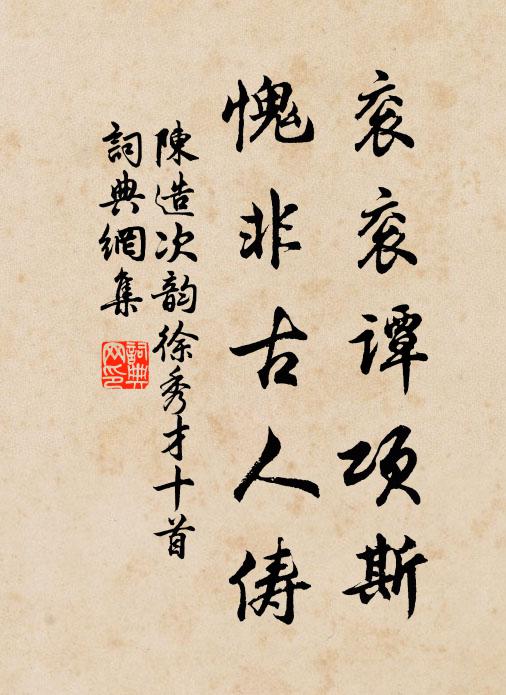 衮衮谭项斯
愧非古人俦
陳造次韵徐秀才十首
詞典網集
詞典
网印